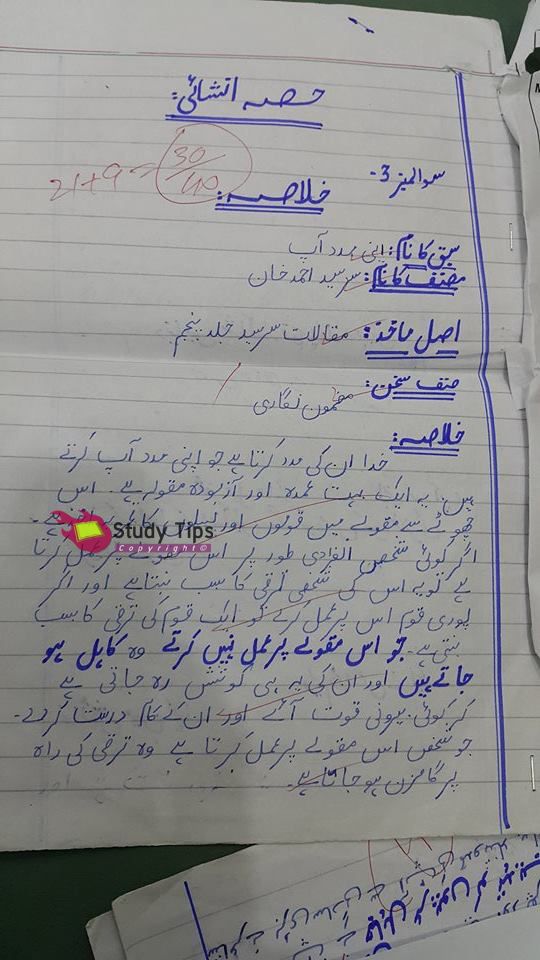 حصہ انشائی:
21+9= 30/40
سوالنمبر 3-
خلاصہ:
سبق کا نام: اپنی مدد آپ
مصنف کا نام: سر سید احمد خان
اصل ماخذ: مقالات سرسید جلد پنجم
صنف سخن:
مضمون نگاری
خلاصہ:
خدا ان کی مدد کرتا ہے جو اپنی مدد آپ کرتے
ہیں۔ یہ ایک بہت عمدہ اور آزمودہ مقولہ ہے۔ اس
چھوٹے سے مقولے میں قوموں اور
Study Tips
Copyright©
اگر کوئی شخص انفرادی طور پر اس مقولے پر عمل کرتا
ہے تو یہ اس کی شخصی ترقی کا سبب بنتا ہے اور اگر
پوری قوم اس پر عمل کرے تو ایک قوم کی ترقی کا سبب
بنتی ہے۔ جو اس مقولے پر عمل نہیں کرتے وہ کاہل ہو
جاتے ہیں اور ان کی یہ ہی کوشش رہ جاتی ہے
کہ کوئی بیرونی قوت آئے اور ان کے کام درست کر دے۔
جو شخص اس مقولے پر عمل کرتا ہے وہ ترقی کی راہ
پر گامزن ہو جاتا ہے۔